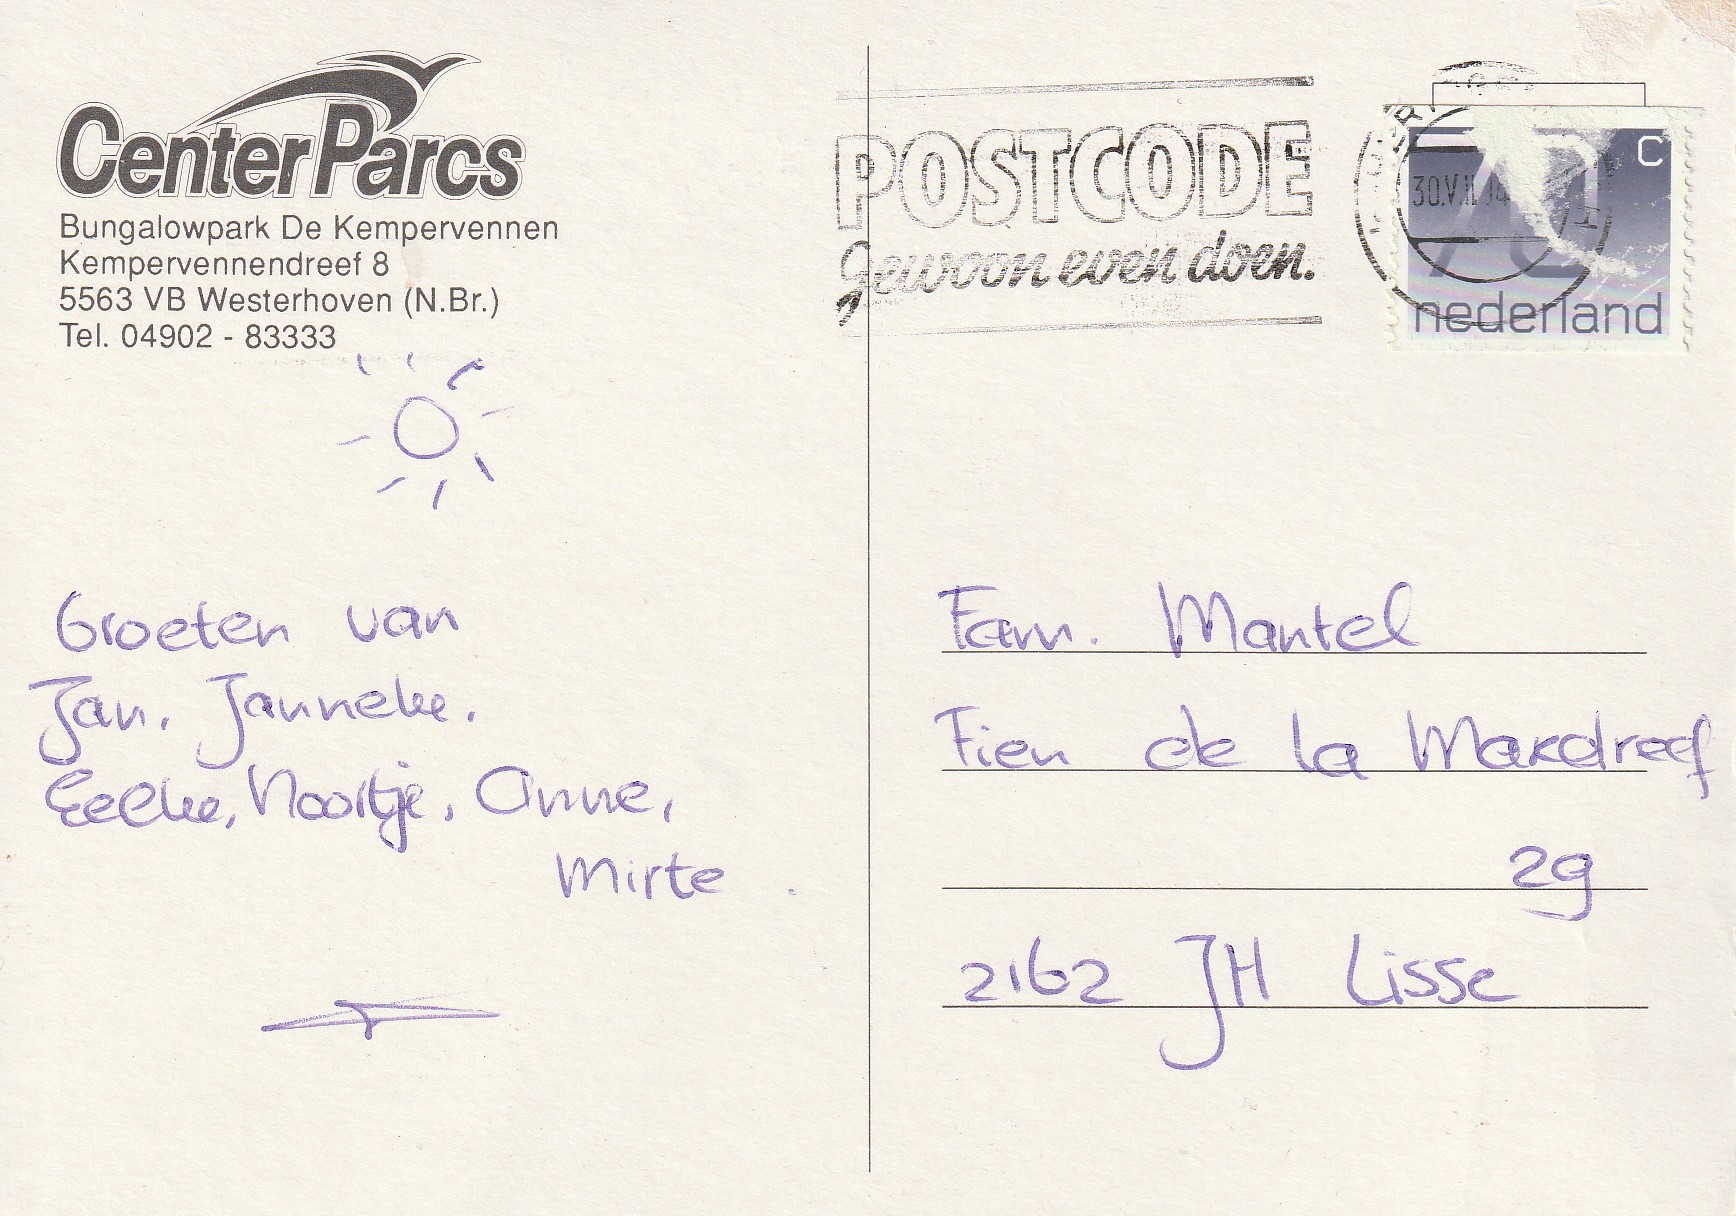 Center Parcs
Bungalowpark De Kempervennen
Kempervennendreef 8
5563 VB Westerhoven (N.Br.)
Tel. 04902 - 83333
Groeten van
Jan, Janneke,
Eelke, Noortje, Anne,
Mirte
POSTCODE
Gewoon even doen.
30.VII.94
70 C
nederland
Fam. Mantel
Fien de la Mardreef
29
2162 JH Lisse